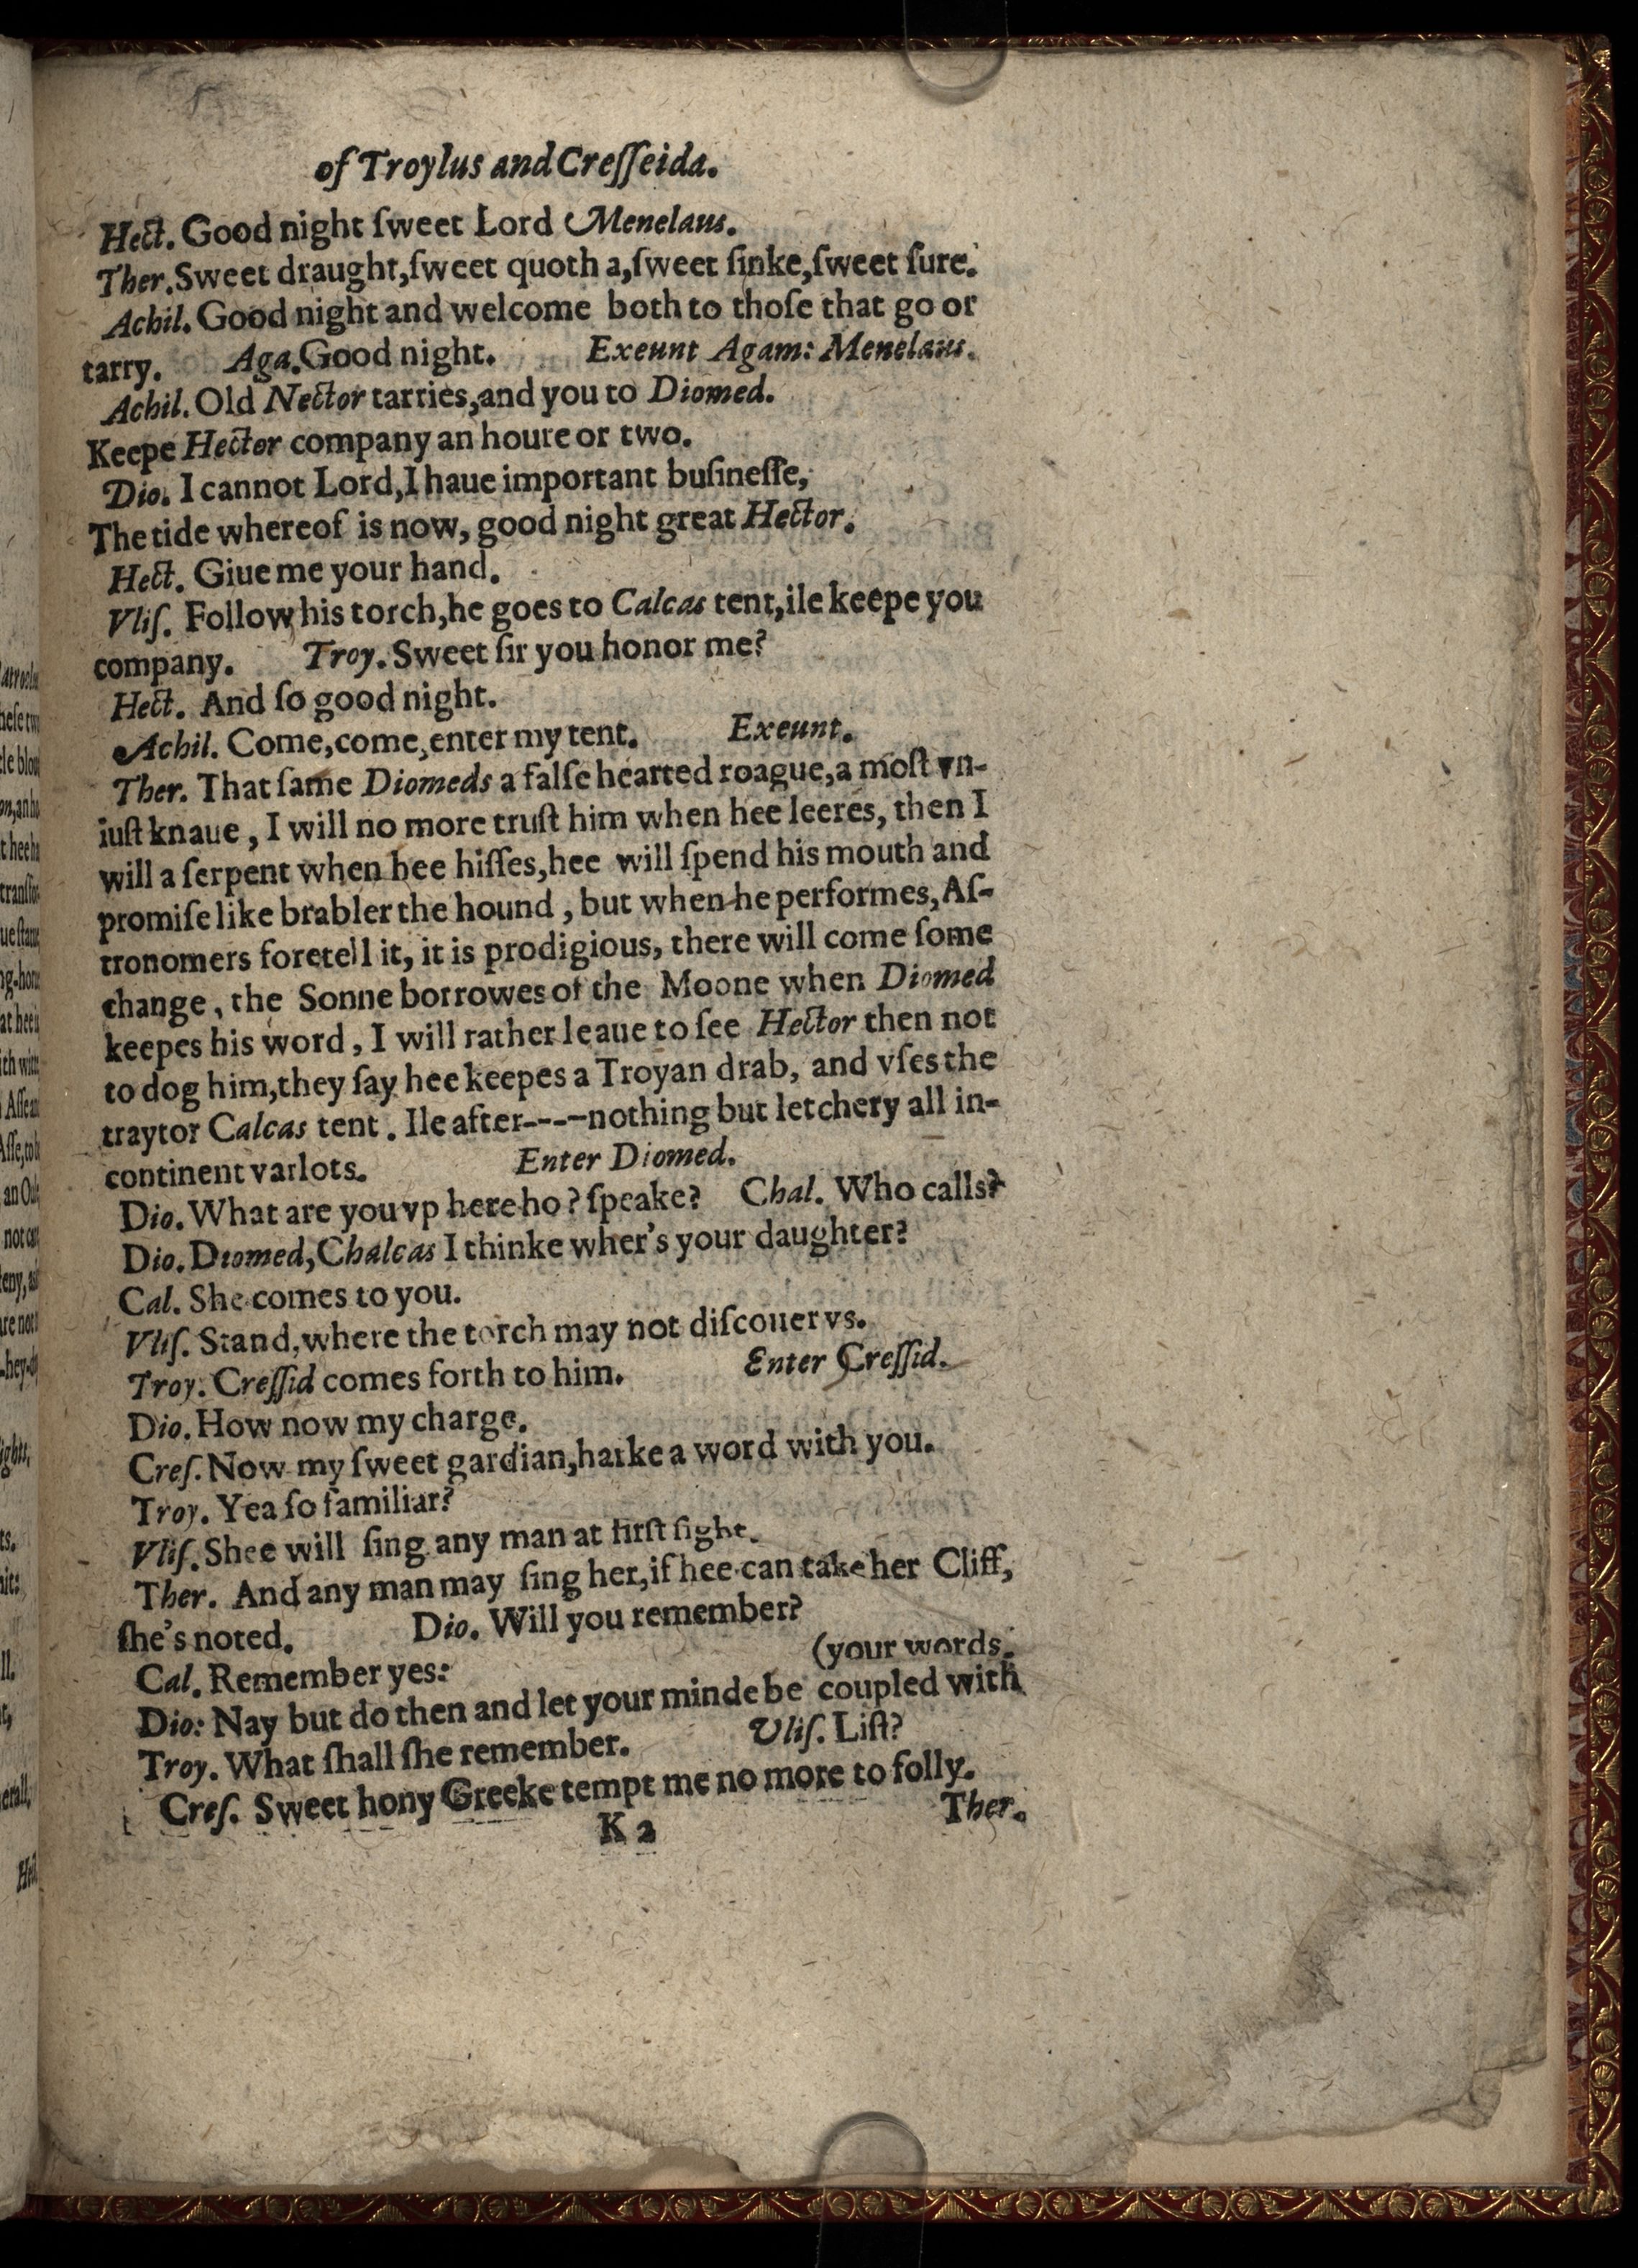 of Troylus and Creſſeida.
Hect. Good night ſweet Lord Menelaus.
Ther. Sweet draught, ſweet quoth a, ſweet ſinke, ſweet ſure.
Achil. Good night and welcome both to thoſe that go or
tarry. Aga. Good night. Exeunt Agam: Menelaus.
Achil. Old Nector tarries, and you to Diomed.
Keepe Hector company an houre or two.
Dio. I cannot Lord, I haue important buſineſſe,
The tide whereof is now, good night great Hector.
Hect. Giue me your hand.
Vliſ. Follow his torch, he goes to Calcas tent, ile keepe you
company. Troy. Sweet ſir you honor me?
Hect. And ſo good night.
Achil. Come, come, enter my tent. Exeunt.
Ther. That ſame Diomeds a falſe hearted roague, a moſt vn-
iuſt knaue, I will no more truſt him when hee leeres, then I
will a ſerpent when hee hiſſes, hee will ſpend his mouth and
promiſe like brabler the hound, but when he performes, Aſ-
tronomers foretell it, it is prodigious, there will come ſome
change, the Sonne borrowes of the Moone when Diomed
keepes his word, I will rather leaue to ſee Hector then not
to dog him, they ſay hee keepes a Troyan drab, and vſes the
traytor Calcas tent. Ile after----nothing but letchery all in-
continent varlots. Enter Diomed.
Dio. What are you vp here ho? ſpeake? Chal. Who calls?
Dio. Diomed, Chalcas I thinke wher's your daughter?
Cal. She comes to you.
Vliſ. Stand, where the torch may not diſcouer vs.
Troy. Creſſid comes forth to him. Enter Creſſid.
Dio. How now my charge.
Creſ. Now my ſweet gardian, harke a word with you.
Troy. Yea ſo familiar?
Vliſ. Shee will ſing any man at firſt ſight.
Ther. And any man may ſing her, if hee can take her Cliff,
ſhe's noted. Dio. Will you remember?
Cal. Remember yes: (your words.
Dio: Nay but do then and let your minde be coupled with
Troy. What ſhall ſhe remember. Vliſ. Liſt?
Creſ. Sweet hony Greeke tempt me no more to folly.
K 2 Ther.